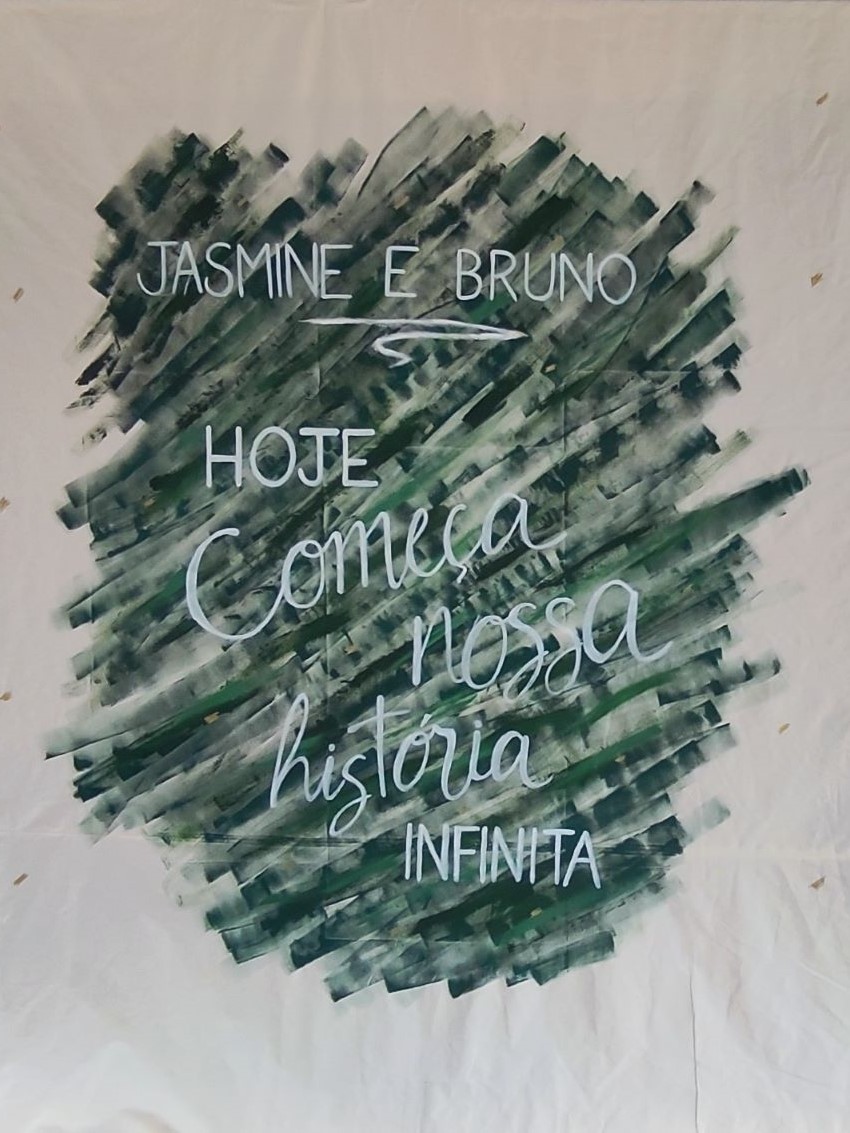 JASMINE E BRUNO
HOJE
Começa
nossa
história
INFINITA